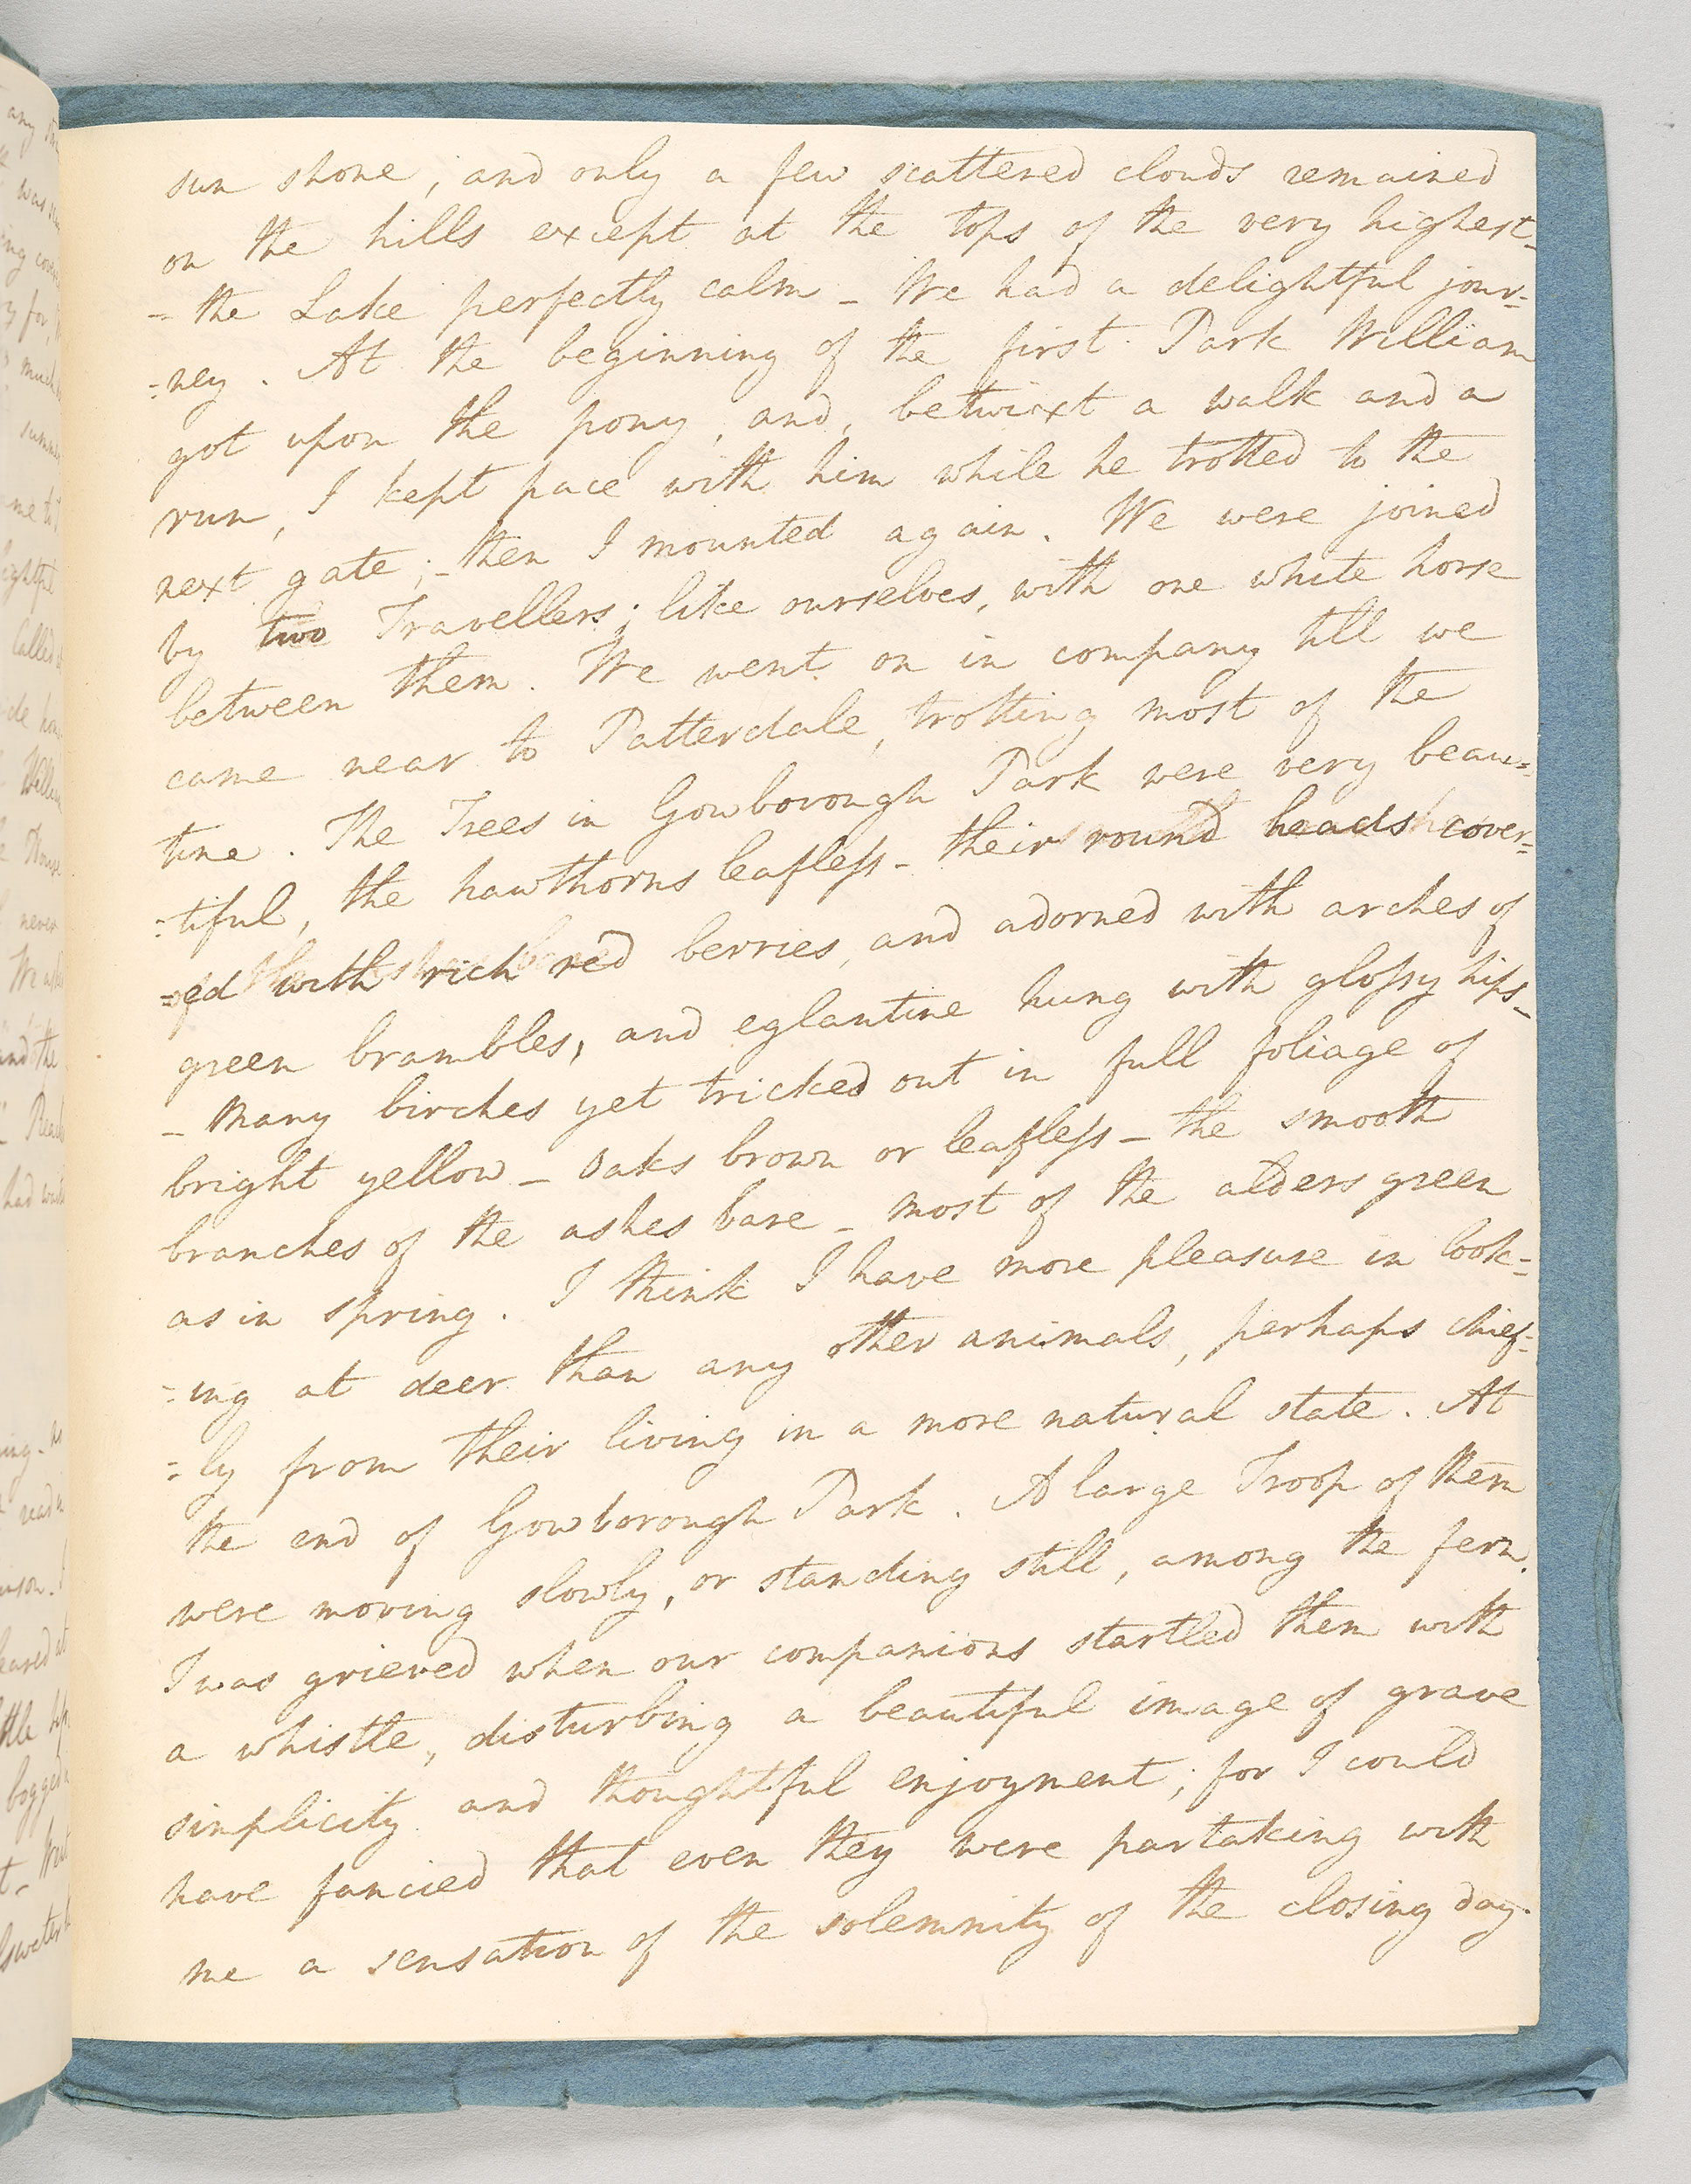 sun shone; and only a few scattered clouds remained
on the hills except at the tops of the very highest_
= the Lake perfectly calm _ We had a delightful jour=
=ney. At the beginning of the first Park William
got upon the pony, and, betwixt a walk and a
run, I kept pace with him while he trotted to the
next gate;_ then I mounted again. We were joined
by two Travellers; like ourselves, with one white horse
between them. We went on in company till we
came near to Patterdale, trotting most of the
time. The Trees in Gowborough Park were very beau=
=tiful, the hawthorns leafleſs _ their round heads cover=
=ed with rich red berries, and adorned with arches of
green brambles, and eglantine hung with gloſsy hips_
_ Many birches yet tricked out in full foliage of
bright yellow _ Oaks brown or leafleſs _ the smooth
branches of the ashes bare _ most of the alders green
as in spring. I think I have more pleasure in look=
=ing at deer than any other animals, perhaps chief=
=ly from their living in a more natural state. At
the end of Gowborough Park. A large Troop of them
were moving slowly, or standing still, among the fern.
I was grieved when our companions startled them with
a whistle, disturbing a beautiful image of grave
simplicity and thoughtful enjoyment; for I could
have fancied that even they were partaking with
me a sensation of the solemnity of the closing day.